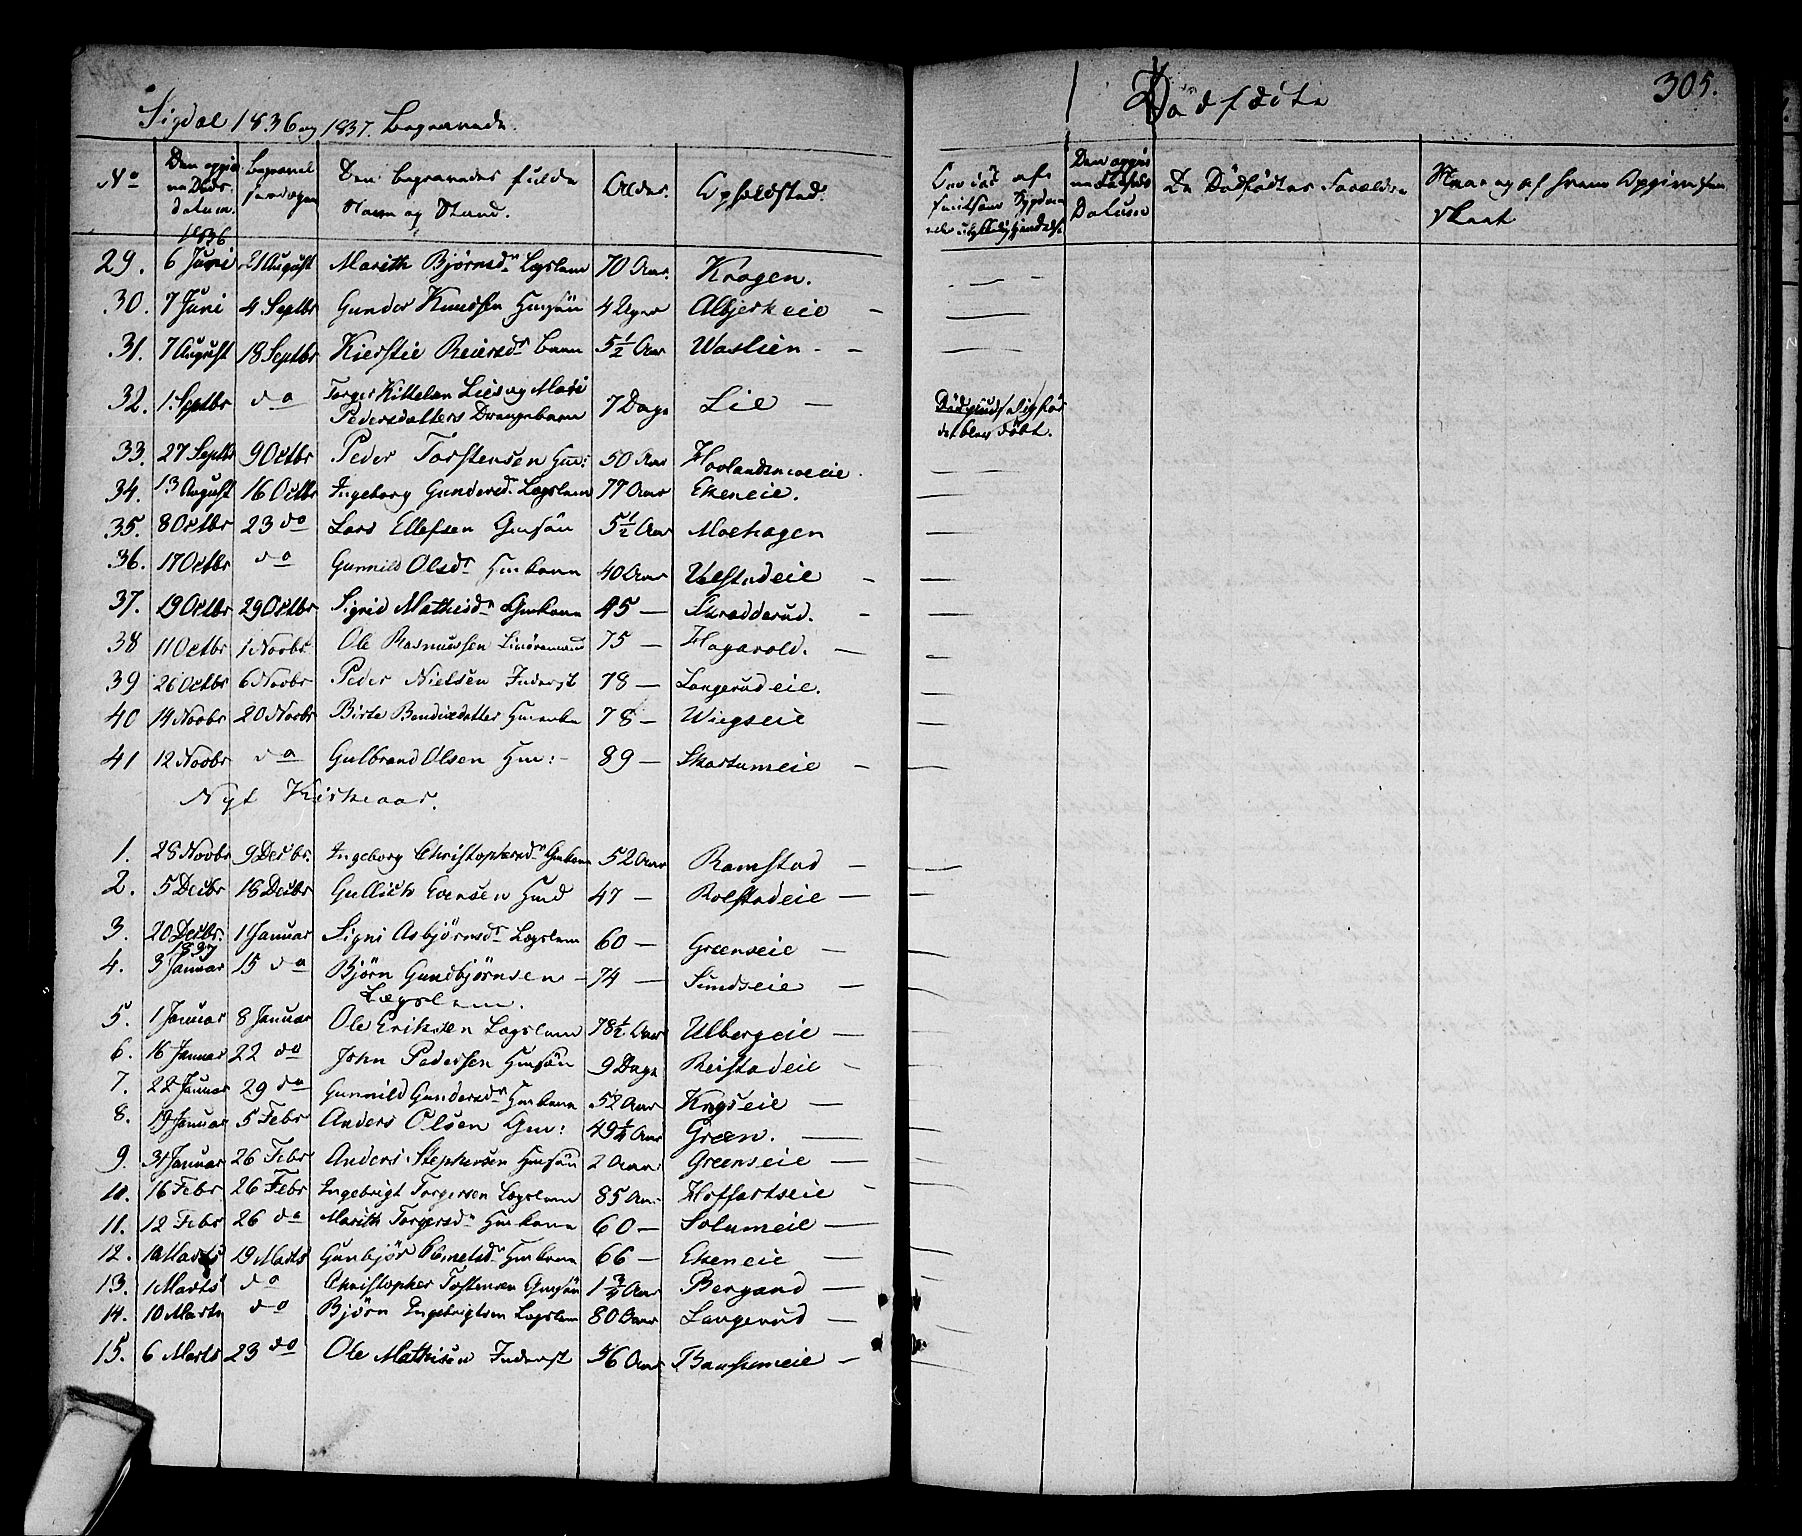 305.
Sigdal 1836 og 1837. Begravede.
Dødfødte
No
Den opgivne Døds datum.
Begravelsesdagen
Den begravedes fulde Navn og Stand.
Alder.
Opholdsted.
Den opgivne Datum
De Dødfødtes Forældre
Naar og af hvem Opgivelsen skeet
1836
29. 6 Juni 21 August Marith Bjørnsdr Lægslem 70 Aar. Kragen.
30. 7 Juni 4 Septbr Gunder Knudsen Hmsøn 4 Uger Albjerkeie
31. 7 August 18 Septbr Kierstie Reiersdr barn 5 1/2 Aar Waslien
32. 1. Septbr do Torger Kittelsen Lies og Mari Pedersdatters Drengebarn 7 Dage Lie
det blev døbt.
33. 27 Septbr 9 Octbr Peder Torstensen Hm: 50 Aar Hovlandsmoeie.
34. 13 August 16 Octbr Ingeborg Gundersdr Lægslem 77 Aar Ekeneie.
35. 8 Octbr 23 do Lars Ellefsen Gmsøn 5 1/2 Aar Moehagen
36. 17 Octbr do Gunnild Olsdr Hmkone 40 Aar Ulstadeie
37. 19 Octbr 29 Octbr Sigrid Mathisdr Gmkone 45 — Skradderud.
38 11 Octbr 1 Novbr. Ole Rasmussen 75 — Hagarold.
39 26 Octbr 6 Novbr Peder Nielsen Inderst 78 — Langerudeie.
40 14 Novbr 20 Novbr Birte Bendixdatter Hmenke 78 — Wiegseie
41 12 Novbr do Gulbrand Olsen Hm: 89 — Skartumeie
Nyt Kirkeaar.
1. 28 Novbr 9 Decbr. Ingeborg Christophersdr Gmkone 52 Aar Ramstad
2. 5 Decbr 18 Decbr Gullich Evensen Hmd 47 — Rolfstadeie
3. 20 Decbr. 1 Januar Signi Asbjørnsdr Lægslem 60 — Greenseie
1837
4. 3 Januar 15 do Bjørn Gundbjørnsen Lægslem. 74 — Sundseie
5. 1 Januar 8 Januar Ole Eriksen Lægslem 78 1/2 Aar Ulbergeie
6. 16 Januar 22 do John Pedersen Hmsøn 9 Dage Reistadeie
7. 22 Januar 29 do Gunnild Gundersdr Hmkone 52 Aar Krgseie
8. 19 Januar 5 Febr Anders Olsen Gm: 49 1/4 Aar Green.
9. 31 Januar 26 Febr Anders Stephensen Hmsøn 2 Aar Greenseie
10. 16 Febr 26 Febr Ingebrigt Torgersen Lægslem 85 Aar Hoffartseie
11. 12 Febr 26 do Marith Torgersdr Hmkone 60 — Solumeie
12. 10 Marts 19 Marts Gunbjør Hmkone 66 — Ekeneie
13. 1 Marts do Christopher Torstensen Gmsøn 1 3/4 Aar Bergand
14. 10 Marts do Bjørn Ingebrigtsen Lægslem 80 Aar Langerud
15. 6 Marts 23 do Ole Mathisen Inderst 56 Aar